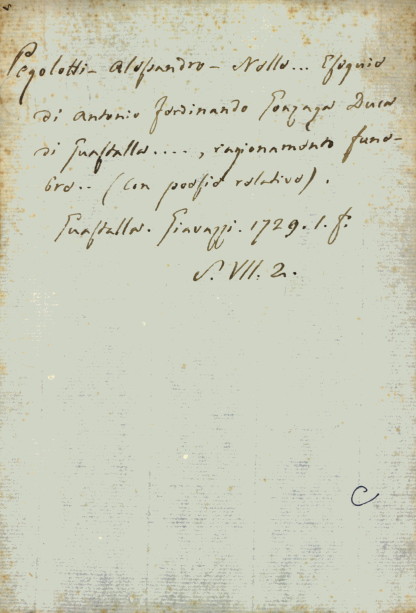 Pegolotti - Alessandro - Nelle... Esequie
di Antonio Ferdinando Gonzaga Duca
di Guastalla...., ragionamento fune-
bre.. (con poesie relative).
Guastalla. Giavazzi. 1729. 1. f.
S. VII. 2.
C